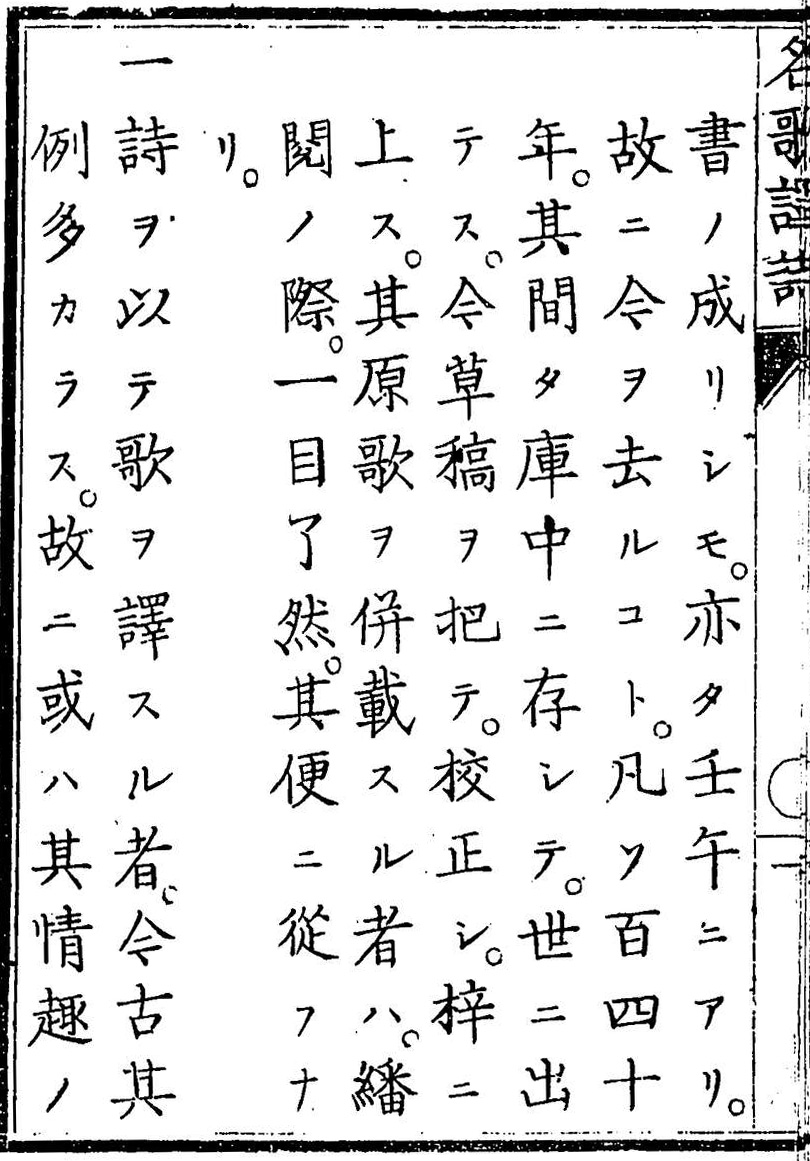 名歌譯詩
一
書ノ成リシモ。亦タ壬午ニアリ。
故ニ令ヲ去ルコト。凡ソ百四十
年。其間タ庫中ニ存シテ。世ニ出
テス。令草稿ヲ把テ。校正シ。梓ニ
上ス。其原歌ヲ併載スル者ハ。繙
閲ノ際。一目了然。其便ニ從フナ
リ。
一詩ヲ以テ歌ヲ譯スル者。令古其
例多カラス。故ニ或ハ其情趣ノ